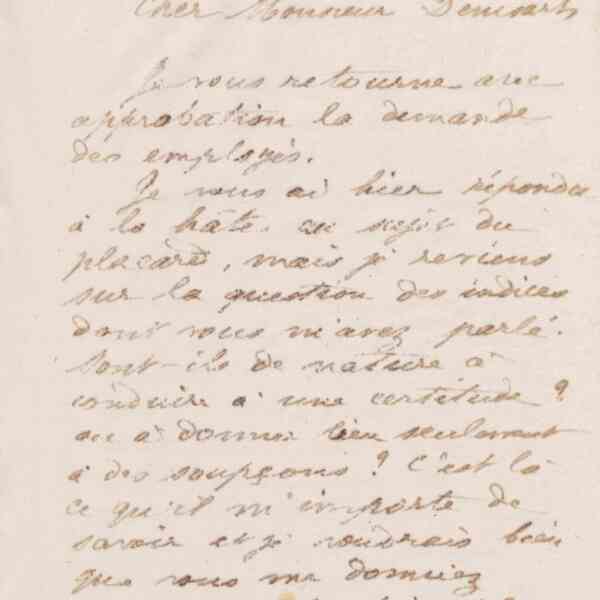 Cher Monsieur
Je vous retourne avec
approbation la demande
des employés.
Je vous ai hier répondu
à la hâte, au sujet du
placard, mais je reviens
sur la question des indices
dont vous m'avez parlé.
Sont-ils de nature à
conduire à une certitude ?
ou à donner lieu seulement
à des soupçons ? C'est là
ce qu'il m'importe de
savoir et je voudrais bien
que vous me donniez